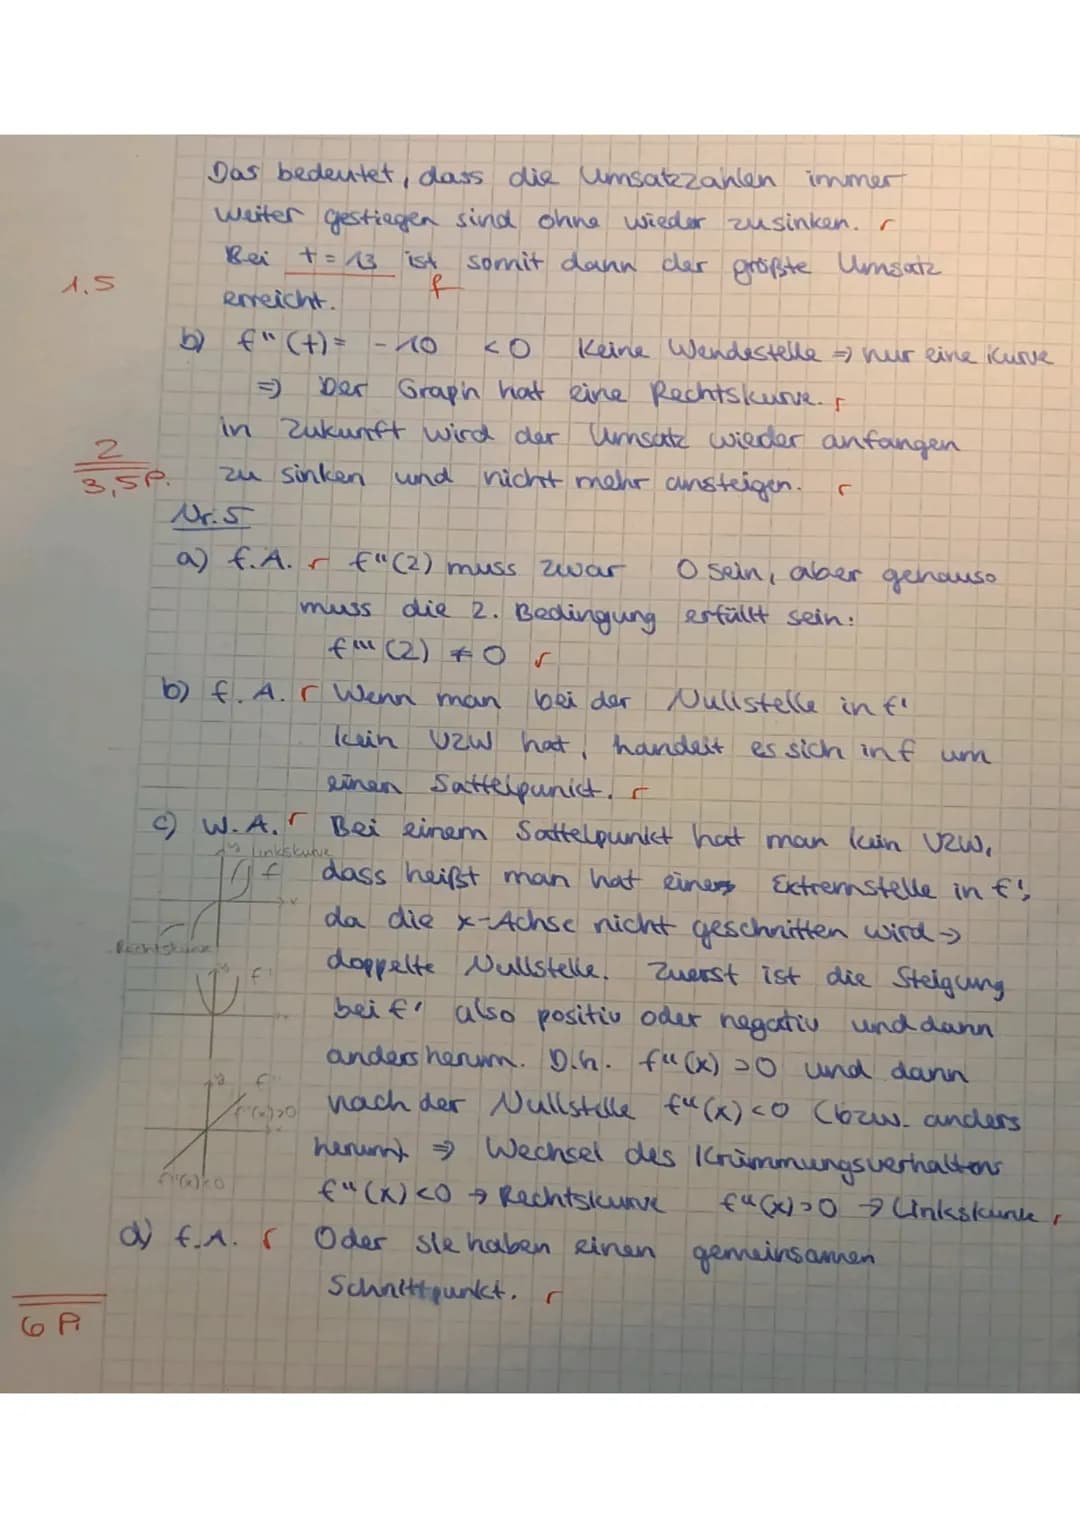 Das bedeutet, dass die Umsatzzahlen immer
weiter gestiegen sind ohne wieder zusinken. r
Bei t = 13 ist somit dann der größte Umsatz
1.5 f
erreicht.
b) f''(t) = -10 < 0 Keine Wendestelle => nur eine Kurve
=> Der Graph hat eine Rechtskurve. r
in Zukunft wird der Umsatz wieder anfangen
2
3,5P. zu sinken und nicht mehr ansteigen. r
Nr. 5
a) f.A. r f''(2) muss zwar 0 sein, aber genauso
muss die 2. Bedingung erfüllt sein:
f'''(2) ≠ 0 r
b) f.A. r Wenn man bei der Nullstelle in f'
kein VZW hat, handelt es sich in f um
einen Sattelpunkt. r
c) W.A. r Bei einem Sattelpunkt hat man kein VZW,
y Linkskurve
f dass heißt man hat einen Extremstelle in f',
x
da die x-Achse nicht geschnitten wird →
Rechtskurve
y f' doppelte Nullstelle. Zuerst ist die Steigung
bei f' also positiv oder negativ und dann
andersherum. D.h. f''(x) > 0 und dann
f''(x)>0 nach der Nullstelle f''(x) < 0 (bzw. anders
herum) => Wechsel des Krümmungsverhaltens
f''(x)<0 f''(x) < 0 → Rechtskurve f''(x) > 0 → Linkskurve r
d) f.A. r Oder sie haben einen gemeinsamen
Schnittpunkt. r
6 P.